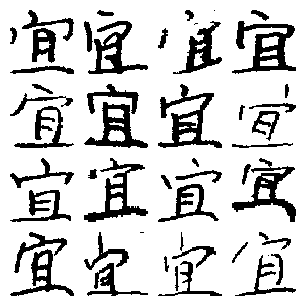 宜宜宜宜
宜宜宜宜
宜宜宜宜
宜宜宜宜